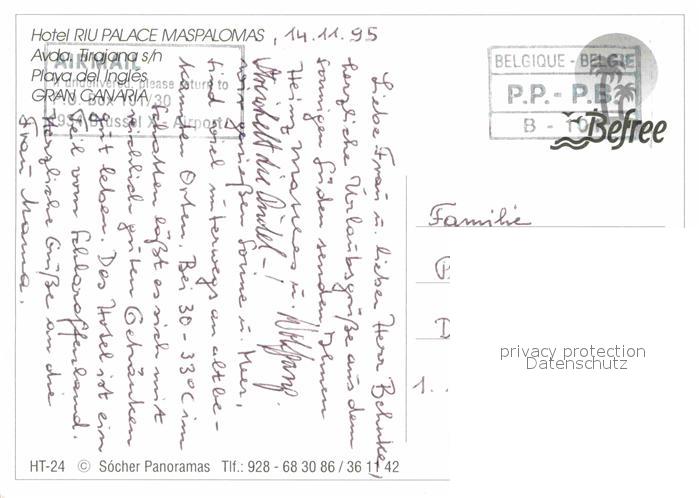 Hotel RIU PALACE MASPALOMAS , 14.11.95
Avda. Tirajana s/n
Playa del Inglés
GRAN CANARIA
AIRMAIL
If undelivered, please return to
P.O. Box 10 /30
1931 Brussel X - Airport
BELGIQUE - BELGIE
P.P. - P.B.
B - 10
Befree
Liebe Frau u. lieber Herr Behnke,
herzliche Urlaubsgrüße aus dem
sonnigen Süden senden Ihnen
Heinz u.
Wolfgang.
- !
wir genießen Sonne u. Meer,
sind viel unterwegs an altbe-
kannten Orten. Bei 30 - 33°C im
Schatten läßt es sich mit
reichlich guten Getränken
gut leben. Das Hotel ist ein
Teil vom Schlaraffenland.
Herzliche Grüße an die
Frau Mama.
Familie
P
D
1..
privacy protection
Datenschutz
HT-24 © Sócher Panoramas Tlf.: 928 - 68 30 86 / 36 11 42